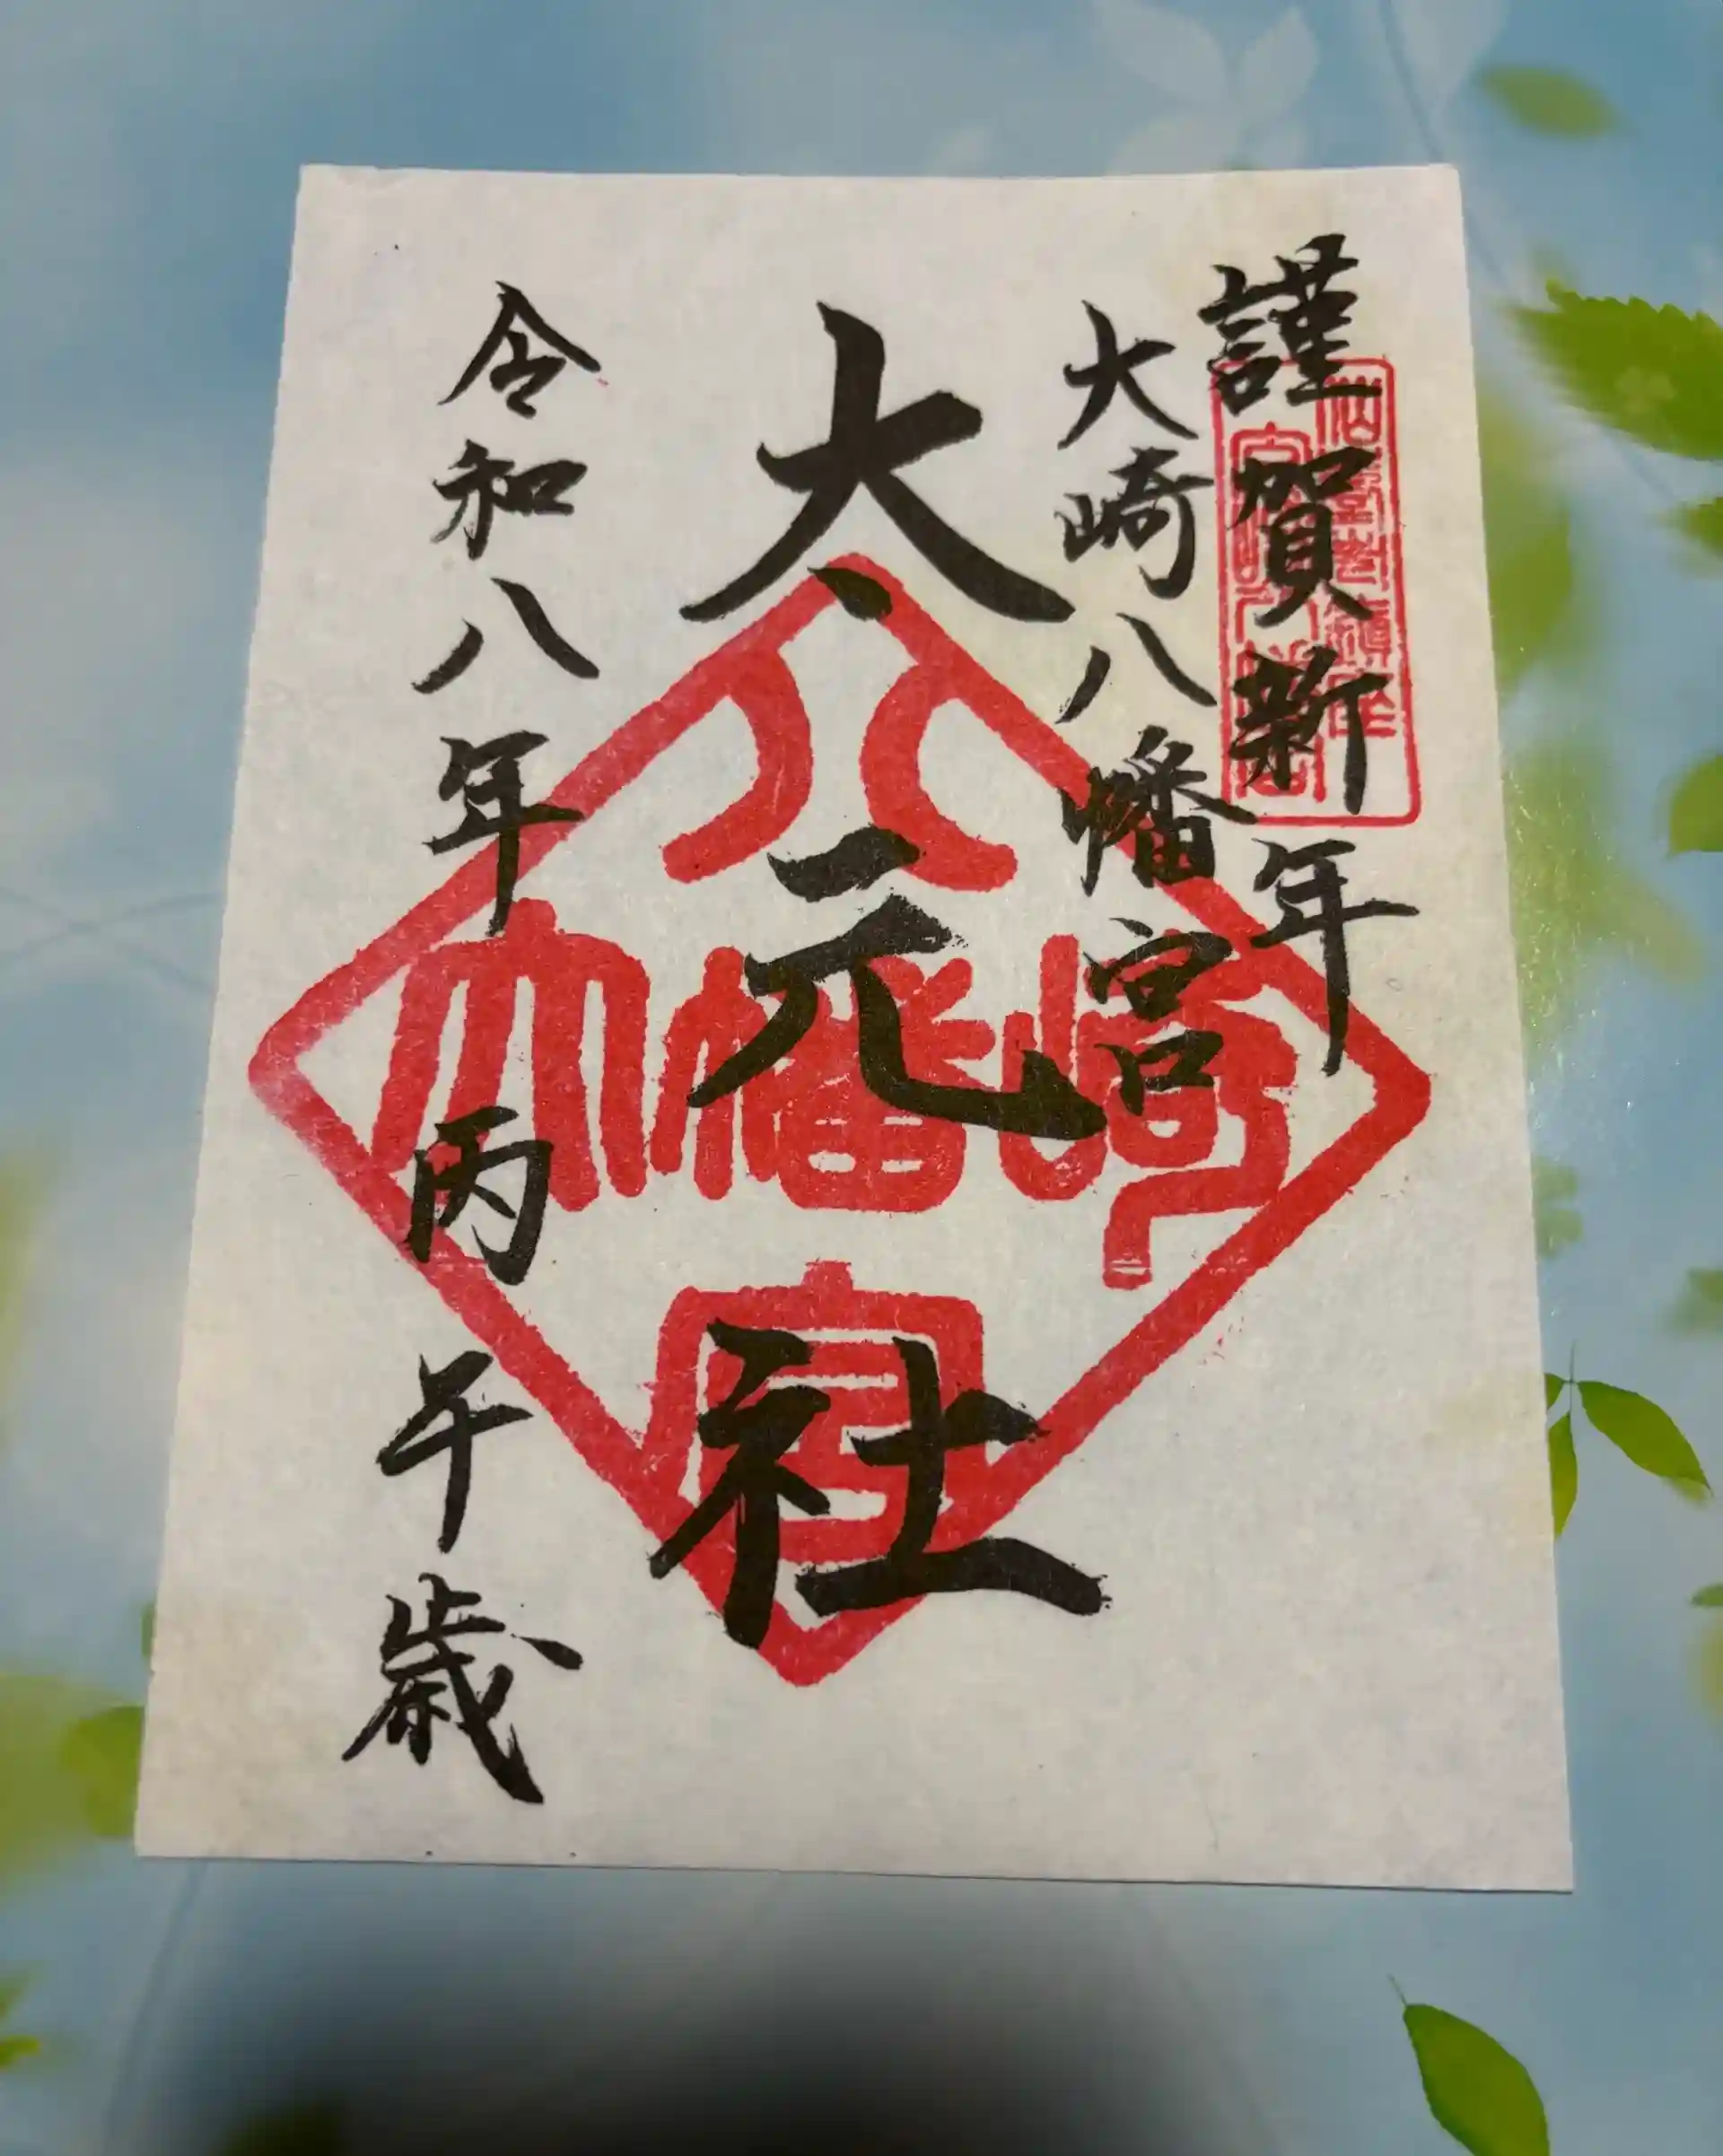 謹賀新年
大崎八幡宮
太元社
大崎八幡宮
令和八年 丙午歳